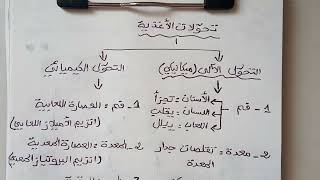 تحولات الأغذية
التحول الآلي (ميكانيكي)
التحول الكيميائي
1- فم
الأسنان: تجزأ
اللسان: يقلب
اللعاب: يبلل
1- فم: العصارة اللعابية
(انزيم الأميلاز اللعابي)
2- معدة: تقلصات جدار
المعدة
2- المعدة: العصارة المعدية
(انزيم البروتياز